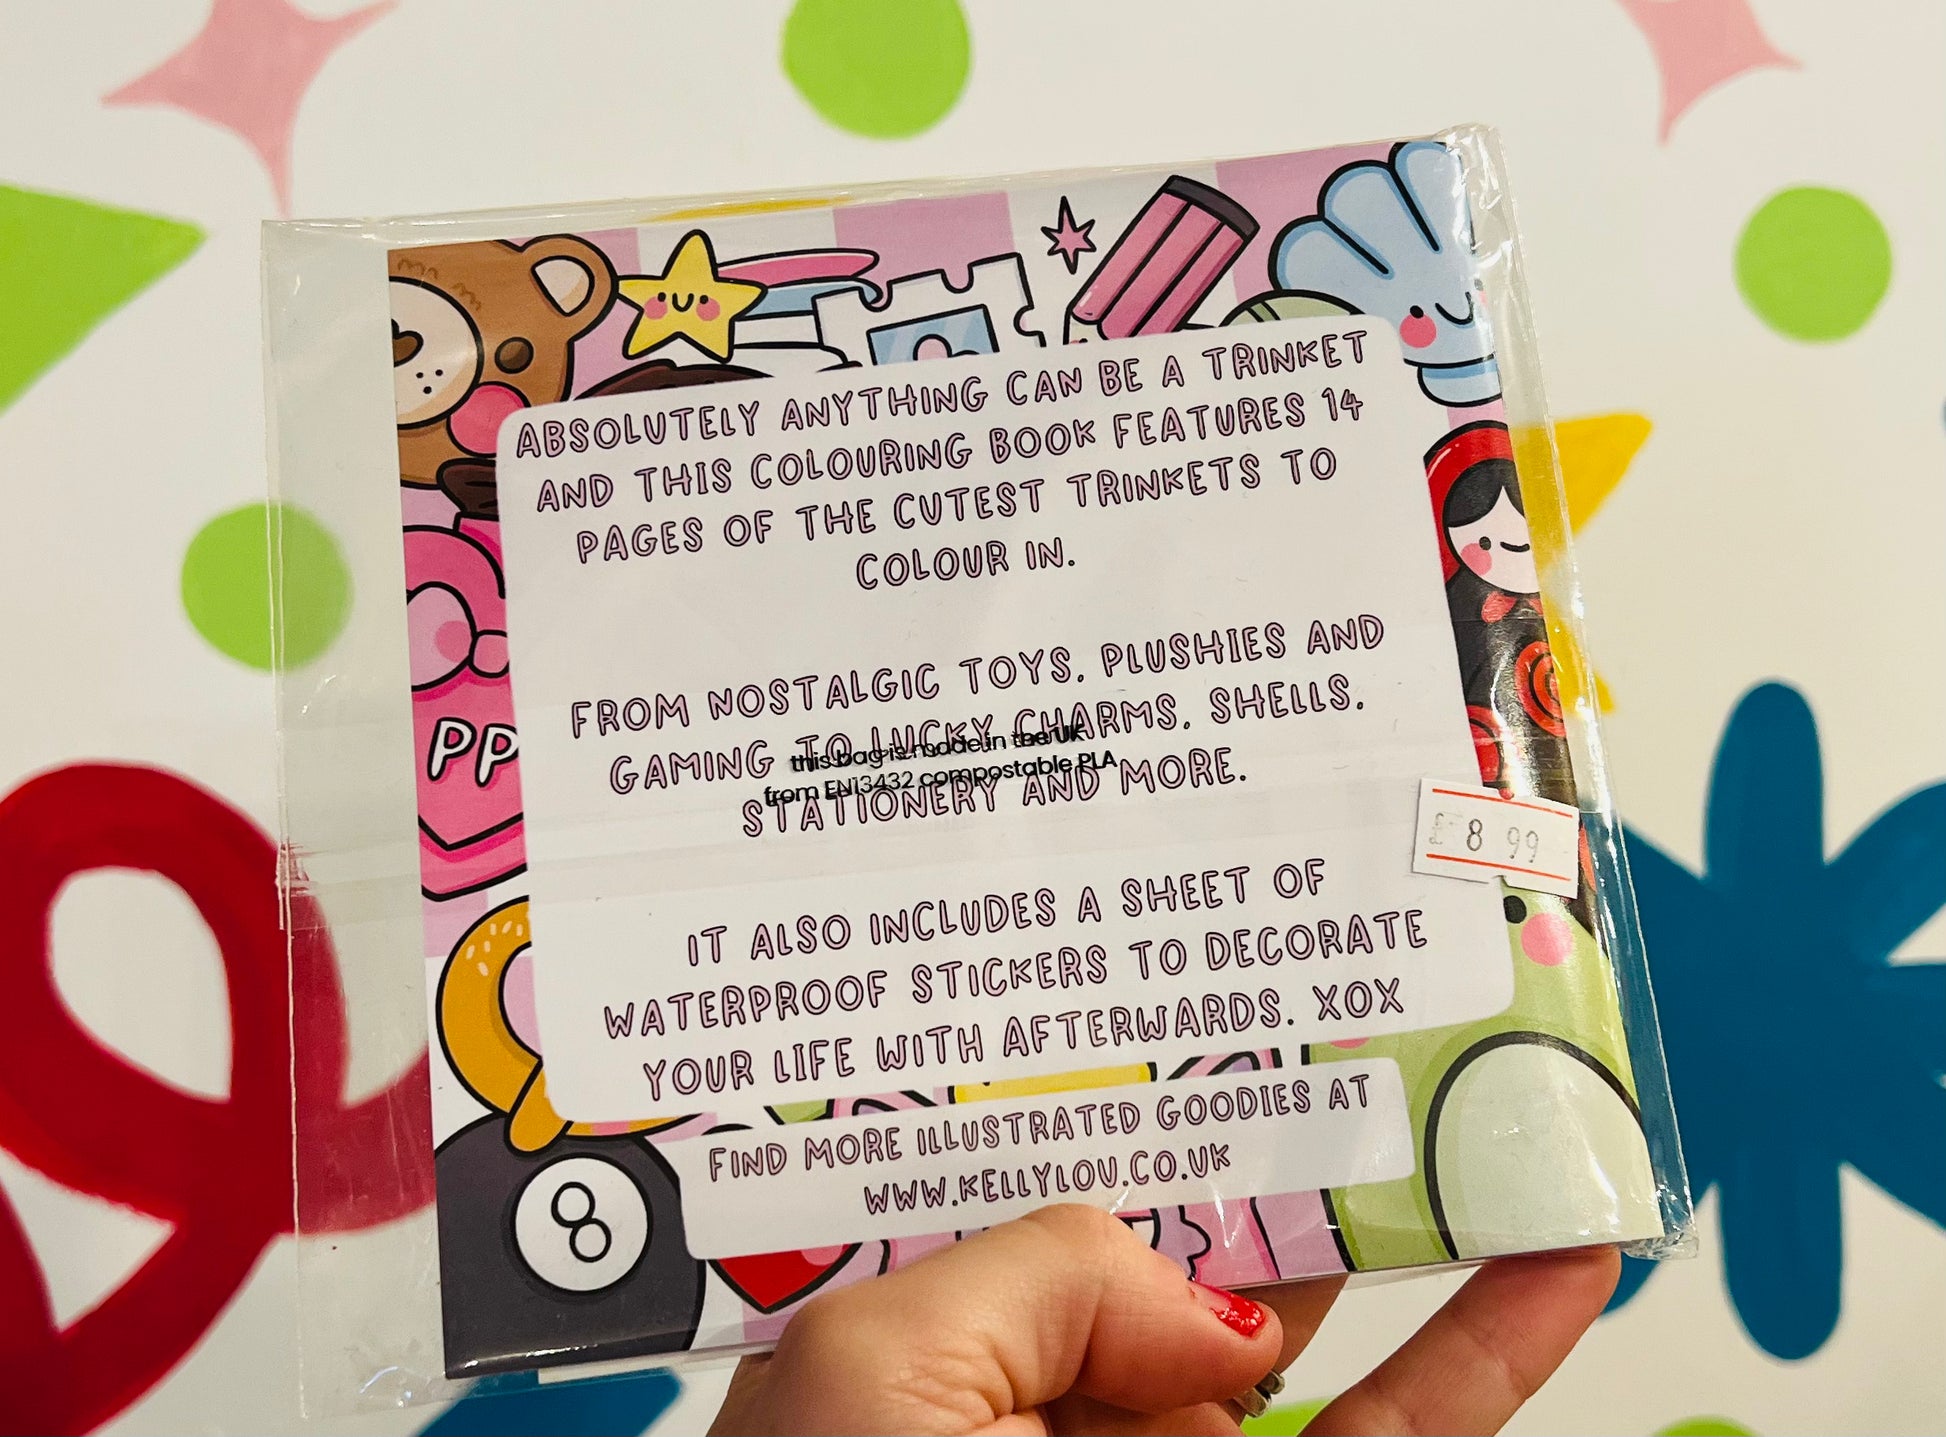 ABSOLUTELY ANYTHING CAN BE A TRINKET
AND THIS COLOURING BOOK FEATURES 14
PAGES OF THE CUTEST TRINKETS TO
COLOUR IN.
FROM NOSTALGIC TOYS, PLUSHIES AND
GAMING TO LUCKY CHARMS, SHELLS,
STATIONERY AND MORE.
this bag is made in the UK
from EN13432 compostable PLA
IT ALSO INCLUDES A SHEET OF
WATERPROOF STICKERS TO DECORATE
YOUR LIFE WITH AFTERWARDS. XOX
FIND MORE ILLUSTRATED GOODIES AT
WWW.KELLYLOU.CO.UK
£ 8 99
PP
8